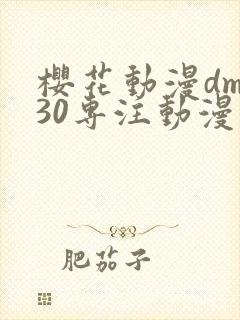 櫻花動漫dm
30專注動漫
肥茄子